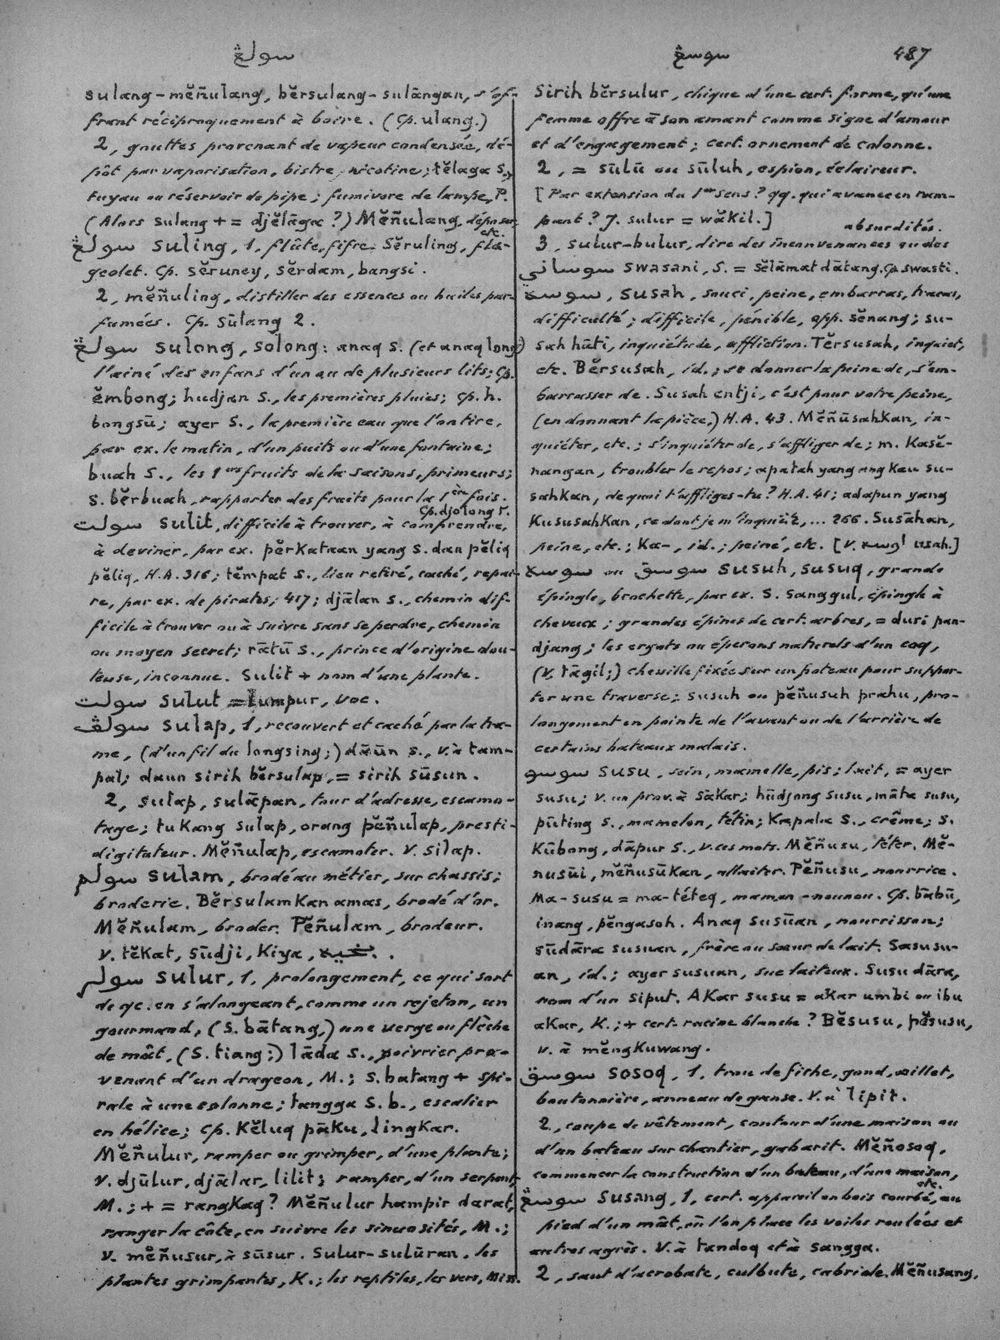 سولڠ
سوسڠ 487
sulang-mĕñulang, bĕrsulang-sulāngan, s'of-
frant réciproquement à boire. (Cp. ulang.)
2, gouttes provenant de vapeur condensée, dé-
pôt par vaporisation, bistre, nicotine; tĕlaga S.,
tuyau ou réservoir de pipe; fumivore de lampe, P.
(Alors sulang + = djĕlāga ?) Mĕñulang, déposer,
etc.
سولڠ suling, 1, flûte, fifre. Sĕruling, fla-
geolet. Cp. sĕruney, sĕrdam, bangsi.
2, mĕñuling, distiller des essences ou huiles par-
fumées. Cp. sūlang 2.
سولڠ sulong, solong: anaq s. (et anaq long)
l'aîné des enfans d'un ou de plusieurs lits; Cp.
ĕmbong; hudjan S., les premières pluies; Cp. h.
bongsū; ayer S., la première eau que l'on tire,
par ex. le matin, d'un puits ou d'une fontaine;
buah S., les 1ers fruits de la saisons, primeurs;
s. bĕrbuah, rapporter des fruits pour la 1ère fois.
Cp. djolong r.
سولت sulit, difficile à trouver, à comprendre,
à deviner, par ex. pĕrkataan yang s. dan pĕliq
pĕliq, H.A. 316; tĕmpat s., lieu retiré, caché, repai-
re, par ex. de pirates; 417; djālan s., chemin dif-
ficile à trouver ou à suivre sans se perdre, chemin
ou moyen secret; rātū s., prince d'origine dou-
teuse, inconnue. Sulit + nom d'une plante.
سولت sulut = lumpur, voc.
سولڤ sulap, 1, recouvert et caché par la tra-
me, (d'un fil du longsing;) dāūn s., v. à tam-
pal; daun sirih bĕrsulap, = sirih sūsun.
2, sulap, sulāpan, tour d'adresse, escamo-
tage; tukang sulap, orang pĕñulap, presti-
digitateur. Mĕñulap, escamoter. V. silap.
سولم sulam, brodé au métier, sur chassis;
broderie. Bĕrsulamkan amas, brodé d'or.
Mĕñulam, broder. Pĕñulam, brodeur.
v. tĕkat, sūdji, Kiya,
سولر sulur, 1, prolongement, ce qui sort
de qc. en s'alongeant, comme un rejeton, un
gourmand, (S. bātang,) une verge ou flèche
de mât, (S. tiang;) lāda s., poivrier pro-
venant d'un drageon, M.; s. batang + spi-
rale à une colonne; tangga S. b., escalier
en hélice; Cp. Kĕluq pāku, lingkar.
Mĕñulur, ramper ou grimper, d'une plante;
v. djūlur, djālar, lilit; ramper, d'un serpent,
M.; + = rangkaq ? Mĕñulur hampir darat,
ranger la côte, en suivre les sinuosités, M.;
v. mĕñusur, à sūsur. Sulur-sulūran, les
plantes grimpantes, K.; les reptiles, les vers, Miss.
Sirih bĕrsulur, chique d'une cert. forme, qu'une
femme offre à son amant comme signe d'amour
et d'engagement; cert. ornement de colonne.
2, = sūlū ou sūluh, espion, éclaireur.
[Par extension du 1er sens ? qq. qui avance en ram-
pant ? J. sulur = wākil.]
absurdités.
3, sulur-bulur, dire des inconvenances ou des
سوساني swasani, S. = sĕlāmat dātang. Cp. swasti.
سوسه, susah, souci, peine, embarras, tracas,
difficulté; difficile, pénible, opp. sĕnang; su-
sah hāti, inquiétude, affliction. Tĕrsusah, inquiet,
etc. Bĕrsusah, id.; se donner la peine de, s'em-
barrasser de. Susah entji, c'est pour votre peine,
(en donnant la pièce,) H.A. 43. Mĕñūsahkan, in-
quiéter, etc.; s'inquiéter de, s'affliger de; m. kasĕ-
nangan, troubler le repos; apatah yang angkau su-
sahkan, de quoi t'affliges-tu ? H.A. 41; adapun yang
Kususahkan, ce dont je m'inquiète, ... 266. Susāhan,
peine, etc.; Ka-, id.; peiné, etc. [V. اوسه usah.]
سوسه ou سوسق susuh, susuq, grande
épingle, brochette, par ex. S. sanggul, épingle à
cheveux; grandes épines de cert. arbres, = duri pan-
djang; les ergots ou éperons naturels d'un coq,
(V. tāgil;) cheville fixée sur un poteau pour suppor-
ter une traverse; susuh ou pĕñusuh prahu, pro-
longement en pointe de l'avant ou de l'arrière de
certains bateaux malais.
سوسو susu, sein, mamelle, pis; lait, = ayer
susu; v. un prov. à sākar; hūdjong susu, māta susu,
pūting s., mamelon, tétin; Kapala S., crême; S.
Kūbong, dāpur S., v. ces mots. Mĕñusu, téter. Mĕ-
nusūi, mĕñusūkan, allaiter. Pĕñusu, nourrice.
Ma-susu = ma-téteq, maman-nounou. Cp. bābū,
inang, pĕngasoh. Anaq susūan, nourrisson;
sūdāra susuan, frère ou sœur de lait. Sasusu-
an, id.; ayer susuan, suc laiteux. Susu dāra,
nom d'un siput. Akar susu = akar umbi ou ibu
akar, K.; + cert. racine blanche ? Bĕsusu, pĕsusu,
v. à mĕngkuwang.
سوسق sosoq, 1, trou de fiche, gond, œillet,
boutonnière, anneau de ganse. V. à lipit.
2, coupe de vêtement, contour d'une maison ou
d'un bateau sur chantier, gabarit. Mĕñosoq,
commencer la construction d'un bateau, d'une maison,
etc.
سوسڠ susang, 1, cert. appareil en bois courbé, au
pied d'un mât, où l'on place les voiles roulées et
autres agrès. V. à tandoq et à sangga.
2, saut d'acrobate, culbute, cabriole. Mĕñusang,